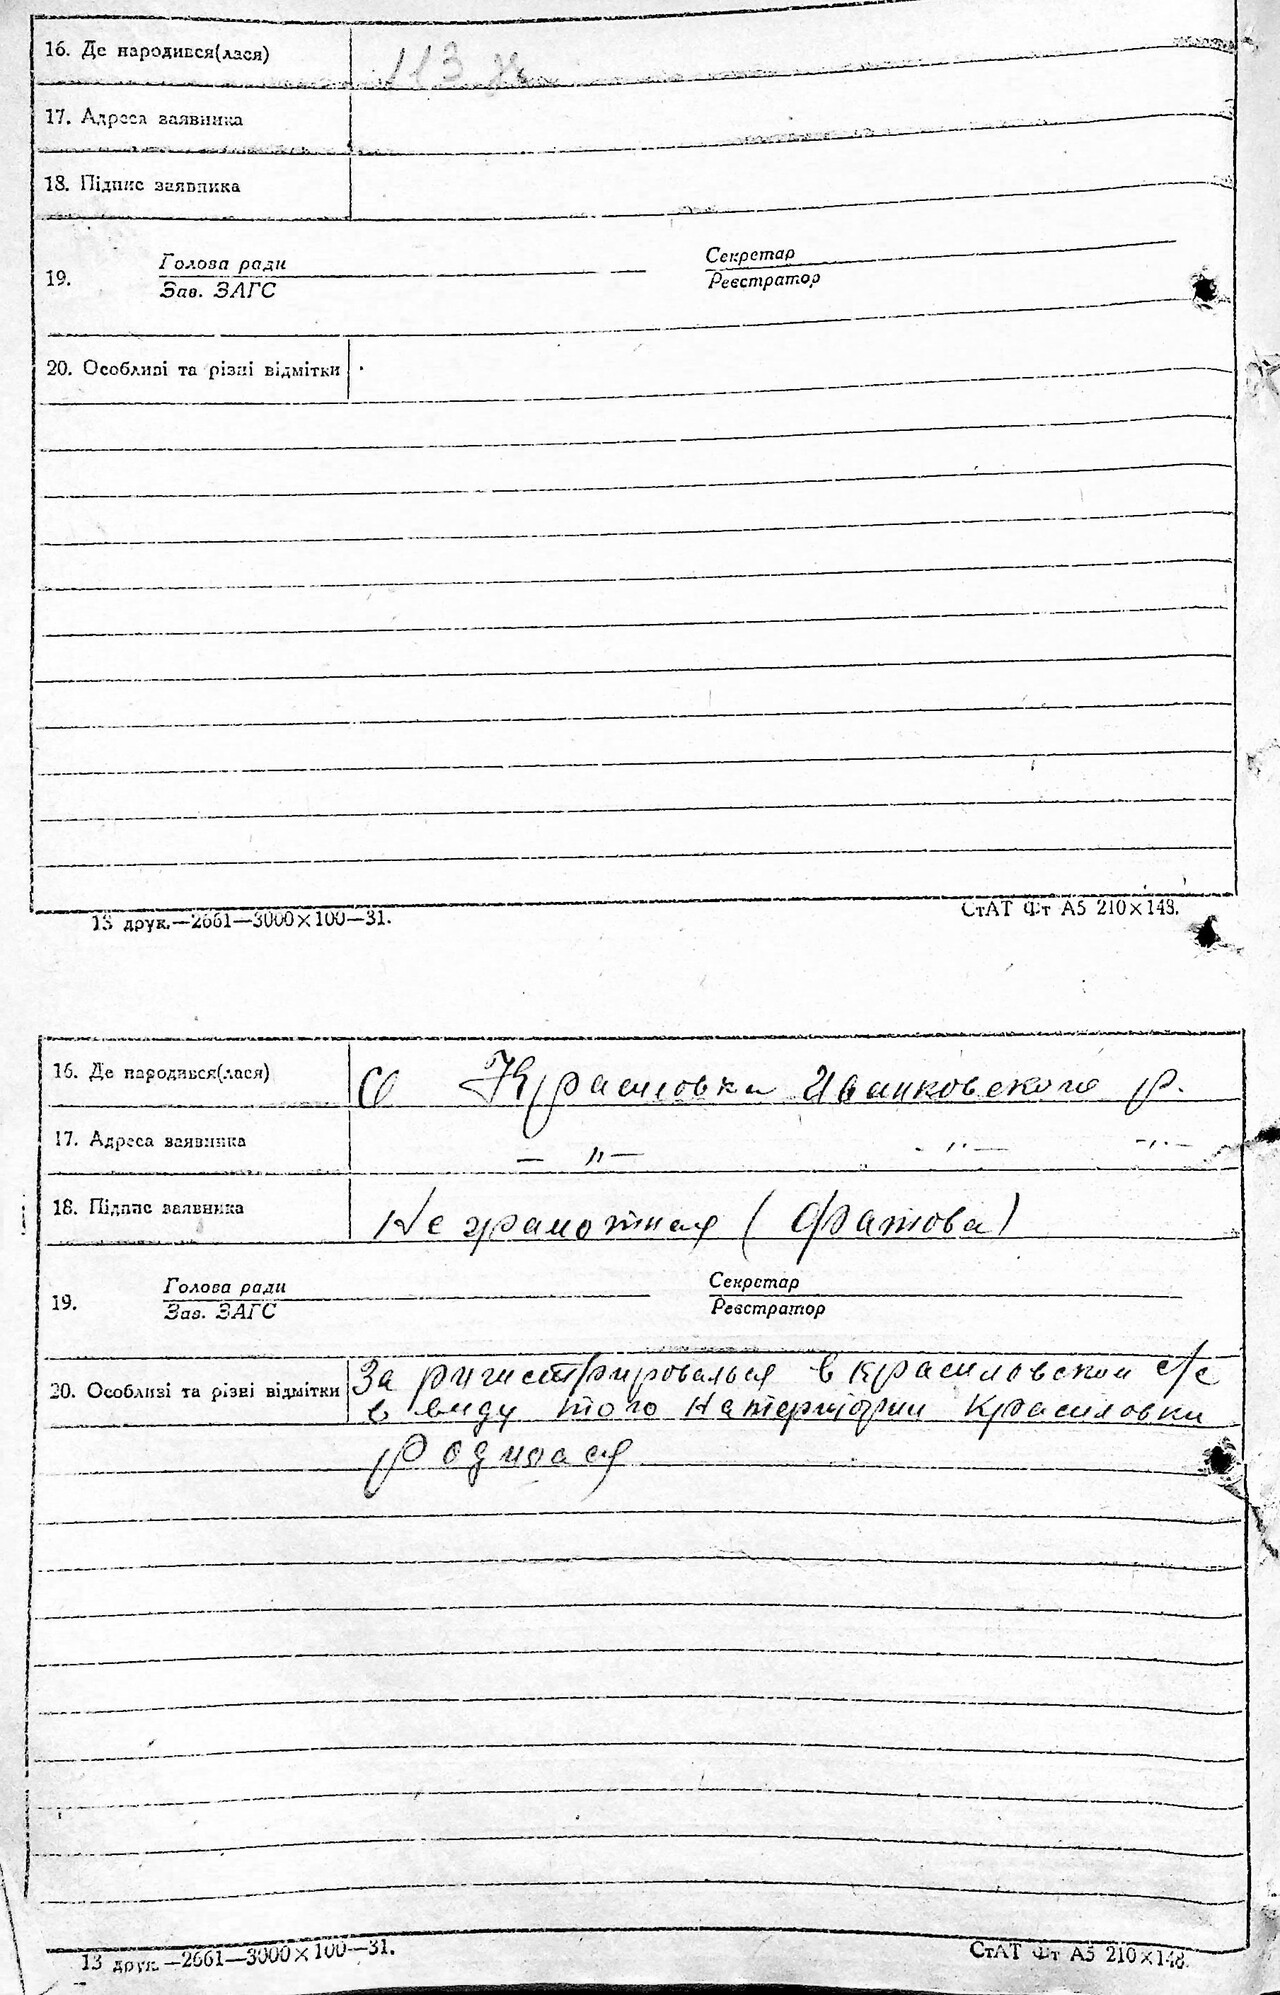 16. Де народився(лася)
113
17. Адреса заявника
18. Підпис заявника
19. Голова ради Секретар
Зав. ЗАГС Реєстратор
20. Особливі та різні відмітки
13 друк.—2661—3000×100—31. СтАТ Фт А5 210×148.
16. Де народився(лася) С Красиловка Иванковского р.
17. Адреса заявника — „ — — „ — — „ —
18. Підпис заявника Не грамотная (Фатова)
19. Голова ради Секретар
Зав. ЗАГС Реєстратор
20. Особливі та різні відмітки За ригистрировалься в Красиловском с/с
в виду того на територии Красиловки
родилася
13 друк.—2661—3000×100—31. СтАТ Фт А5 210×148.